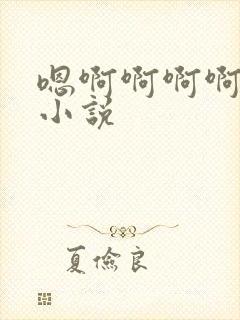 嗯啊啊啊啊
小说
夏俭良